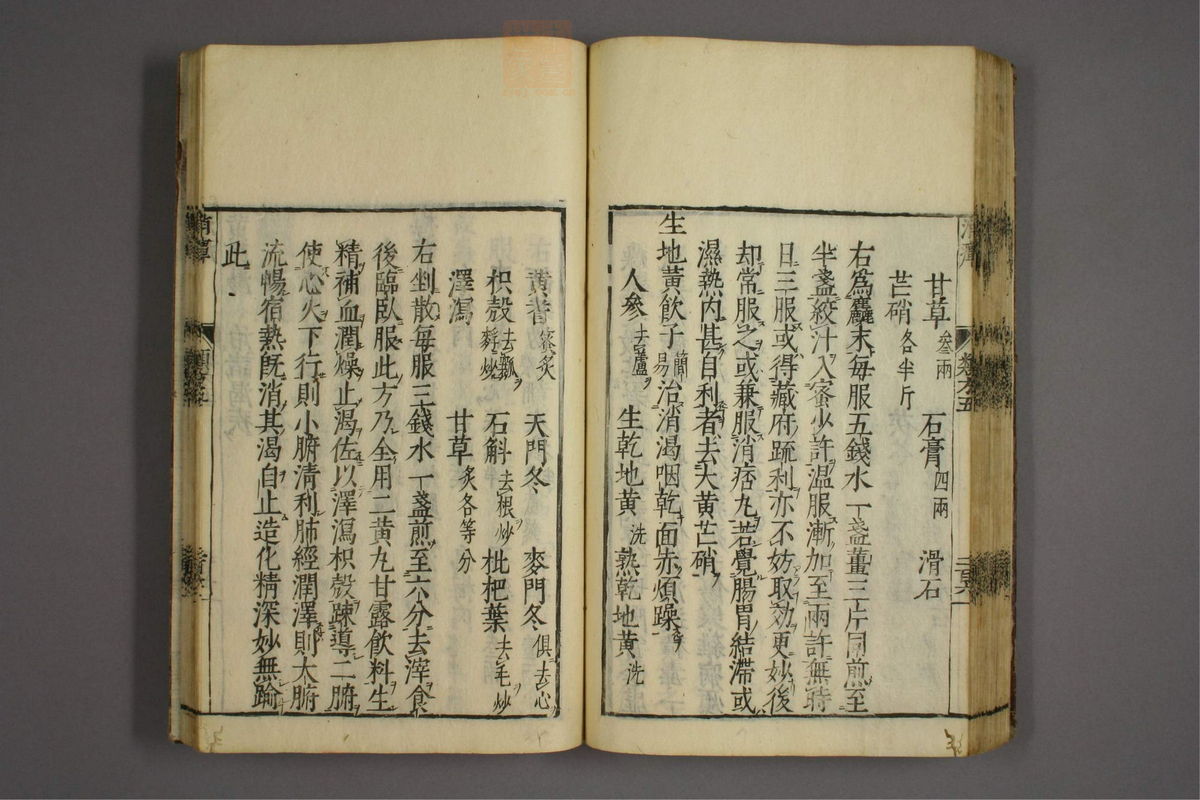 甘草叄兩 石膏四兩 滑石
芒硝各半斤
右爲麤末每服五錢水一盞薑三片同煎至
半盞絞汁入蜜少許温服漸加至兩許無時
日三服或得藏府疏利亦不妨取効更妙後
却常服之或兼服消痞丸若覺腸胃結滯或
濕熱内甚自利者去大黄芒硝
生地黄飲子簡易治消渴咽乾面赤煩躁
人參去蘆 生乾地黄洗 熟乾地黄洗
黄耆蜜炙 天門冬 麥門冬俱去心
枳殼去瓤麩炒 石斛去根炒 枇杷葉去毛炒
澤瀉 甘草炙各等分
右剉散每服三錢水一盞煎至六分去滓食
後臨臥服此方乃全用二黄丸甘露飲料生
精補血潤燥止渴佐以澤瀉枳殼疎導二腑
使心火下行則小腑清利肺經潤澤則大腑
流暢宿熱既消其渴自止造化精深妙無踰
此